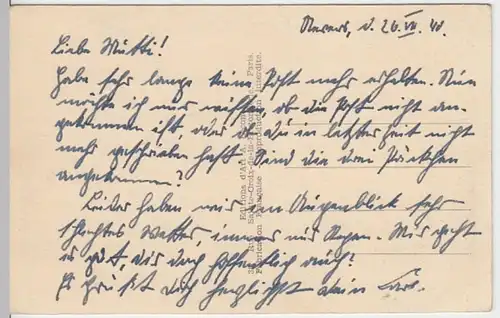 Nevers, d. 26.VII.40.
Liebe Mutti!
Habe sehr lange keine Post mehr erhalten. Nun
möchte ich nur wissen, ob die Post nicht an-
gekommen ist, oder ob Du in letzter Zeit nicht
mehr geschrieben hast. Sind die drei Päckchen
angekommen?
Leider haben wir im Augenblick sehr
schlechtes Wetter, immer nur Regen. Mir geht
es gut, Dir doch hoffentlich auch?
Es grüßt Dich herzlichst Dein
Editions d'Art
Paris.
Fabrication Française
Reproduction interdite.